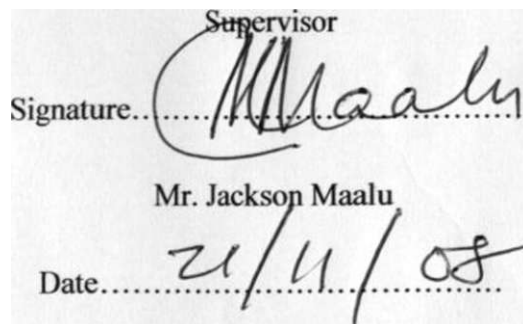 Supervisor
Signature.......Maalu
Mr. Jackson Maalu
Date.......21/11/08